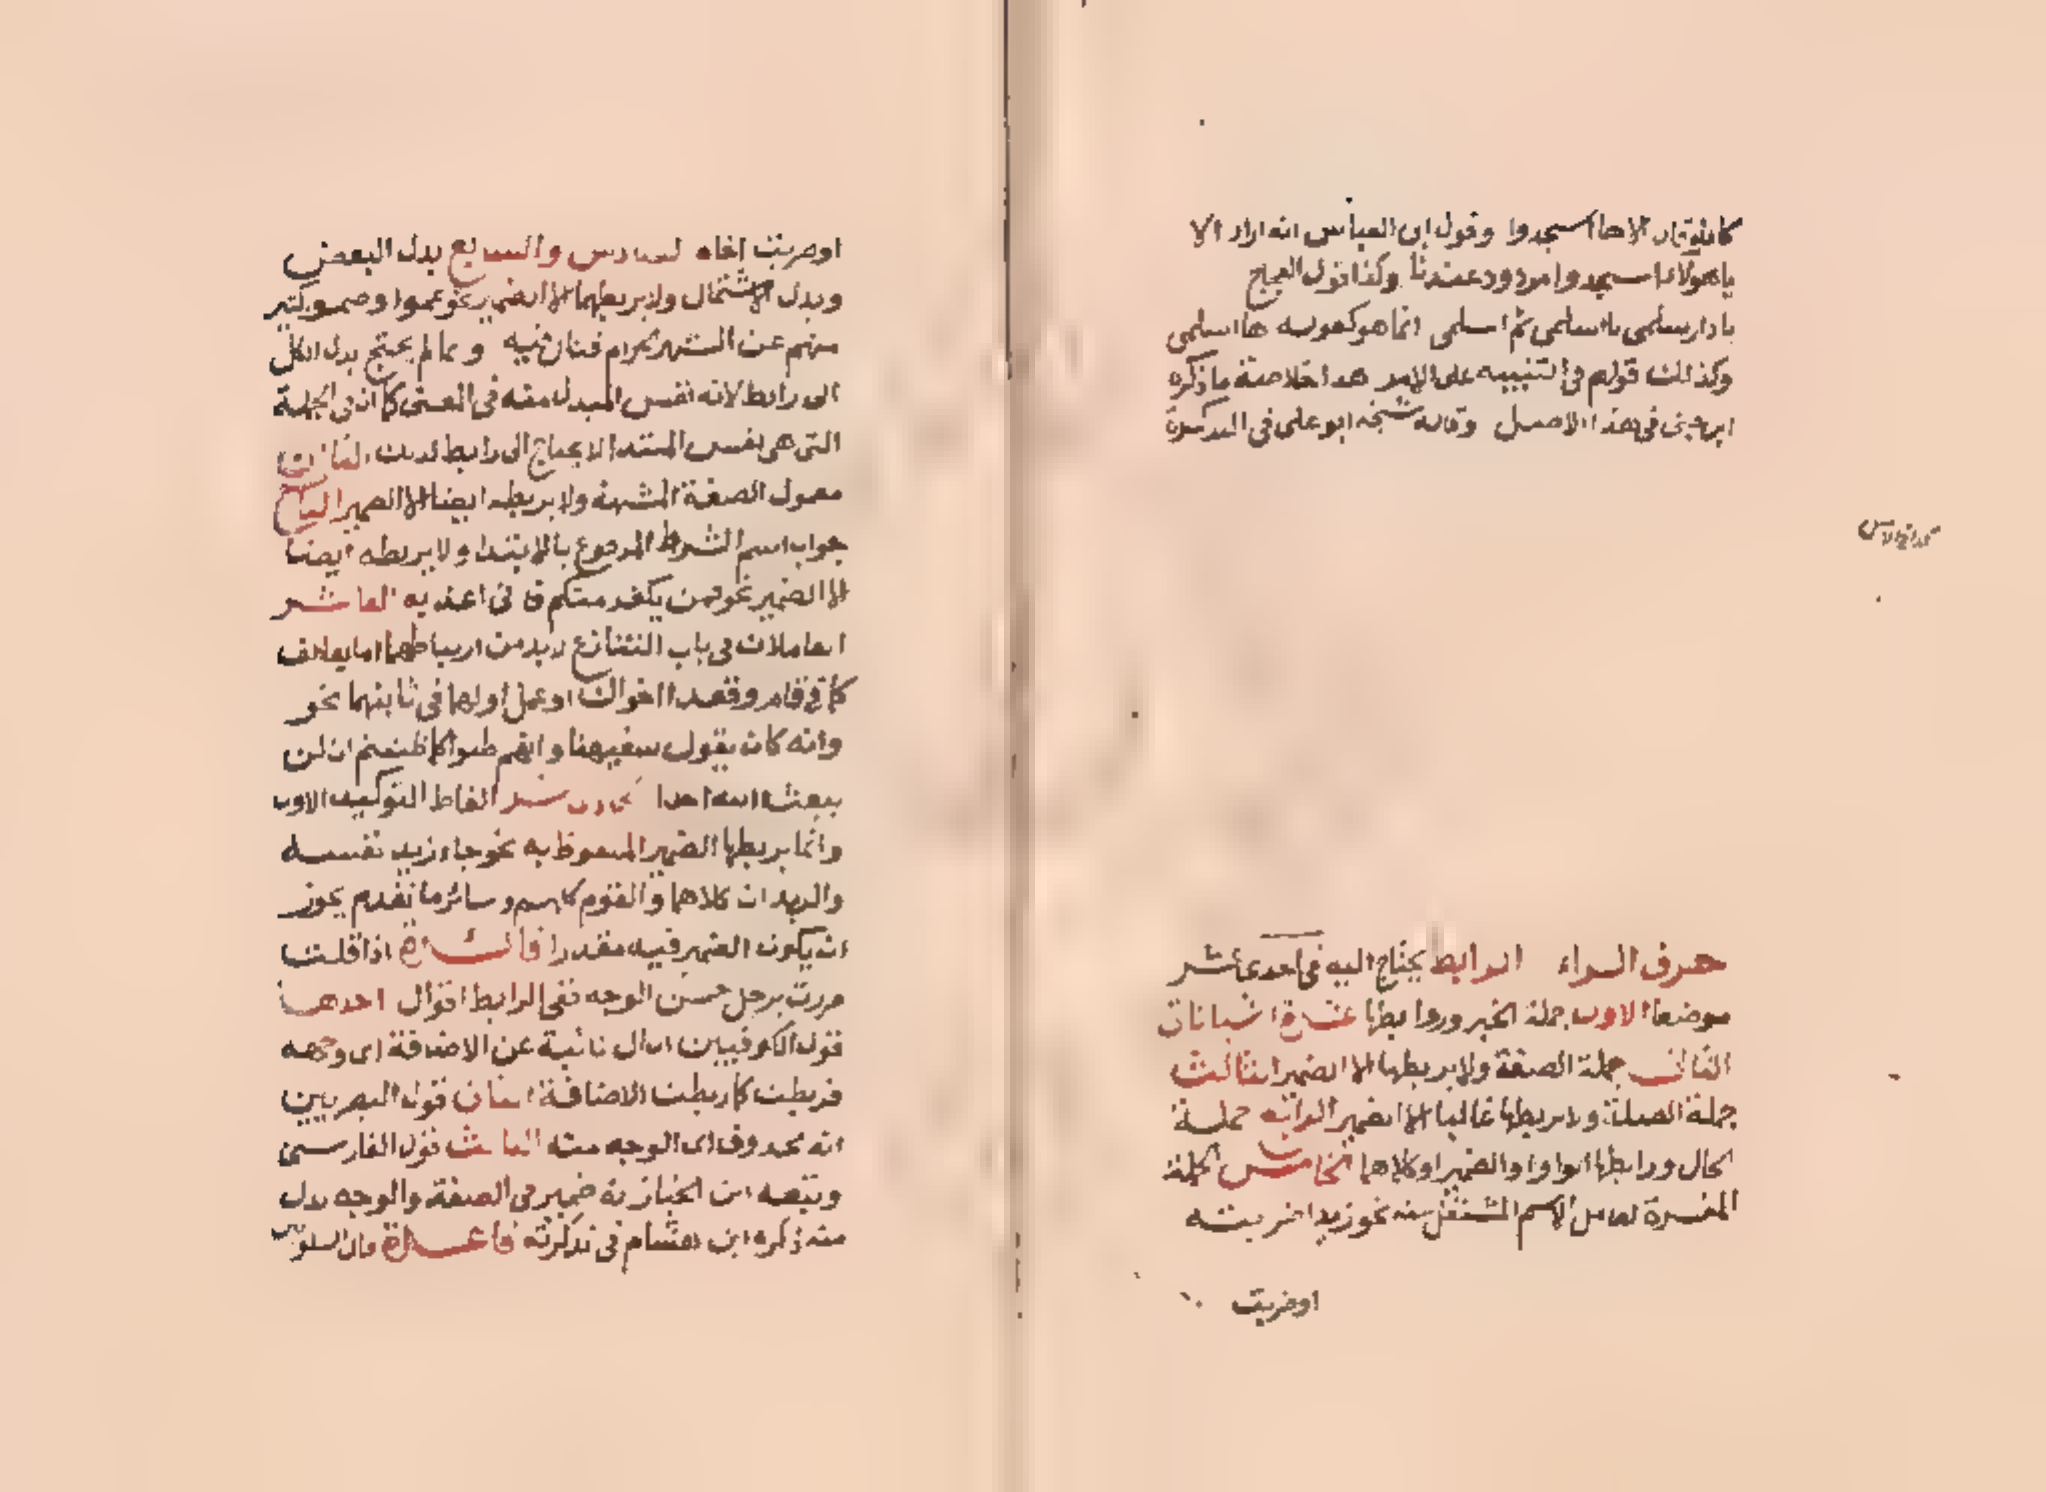 كانه قال الاها اسجدوا وقول ابي العباس انه اراد الا
ياهولاء اسجدوا مردود عندنا وكذا قول العجاج
يا دار سلمى يا اسلمي ثم اسلمي انما هو كقوله ها اسلمي
وكذلك قولهم في التنبيه على الامر هذا خلاصة ما ذكره
ابن جني في هذا الاصل وقاله شيخه ابو علي في التذكرة
حرف الراء الرابط يحتاج اليه في احد عشر
موضعا الاول جملة الخبر وروابطها عشرة اشيا
الثاني جملة الصفة ولا يربطها الا الضمير الثالث
جملة الصلة ولا يربطها غالبا الا الضمير الرابع جملة
الحال ورابطها الواو او الضمير او كلاهما الخامس الجملة
المفسرة لعامل الاسم المشتغل عنه نحو زيدا ضربته
اوضربت
اوضربت اخاه السادس والسابع بدل البعض
وبدل الاشتمال ولا يربطهما الا الضمير نحو عموا وصموا كثير
منهم عن الشهر الحرام قتال فيه وانما لم يحتج بدل الكل
الى رابط لانه نفس المبدل منه في المعنى كما ان الجملة
التي هي نفس المبتدا لا يحتاج الى رابط لذلك الثامن
معمول الصفة المشبهة ولا يربطه ايضا الا الضمير التاسع
جواب اسم الشرط المرفوع بالابتدا ولا يربطه ايضا
الا الضمير نحو فمن يكفر منكم فاني اعذبه العاشر
العاملان في باب التنازع لا بد من ارتباطهما اما بعاطف
كما في قام وقعد اخواك او عمل اولهما في ثانيهما نحو
وانه كان يقول سفيهنا وانهم ظنوا كما ظننتم ان لن
يبعث الله احدا الحادي عشر الفاظ التوكيد الاول
وانما يربطها الضمير الملفوظ به نحو جاء زيد نفسه
والزيدان كلاهما والقوم كلهم وسائر ما تقدم يجوز
ان يكون الضمير فيه مقدرا فائدة اذا قلت
مررت برجل حسن الوجه ففي الرابط اقوال احدها
قول الكوفيين ان ال نائبة عن الاضافة اي وجهه
فربطت كما ربطت الاضافة الثاني قول البصريين
انه محذوف اي الوجه منه الثالث قول الفارسي
وتبعه ابن الخباز انه ضمير في الصفة والوجه بدل
منه ذكره ابن هشام في تذكرته قاعدة قال الشلوبين